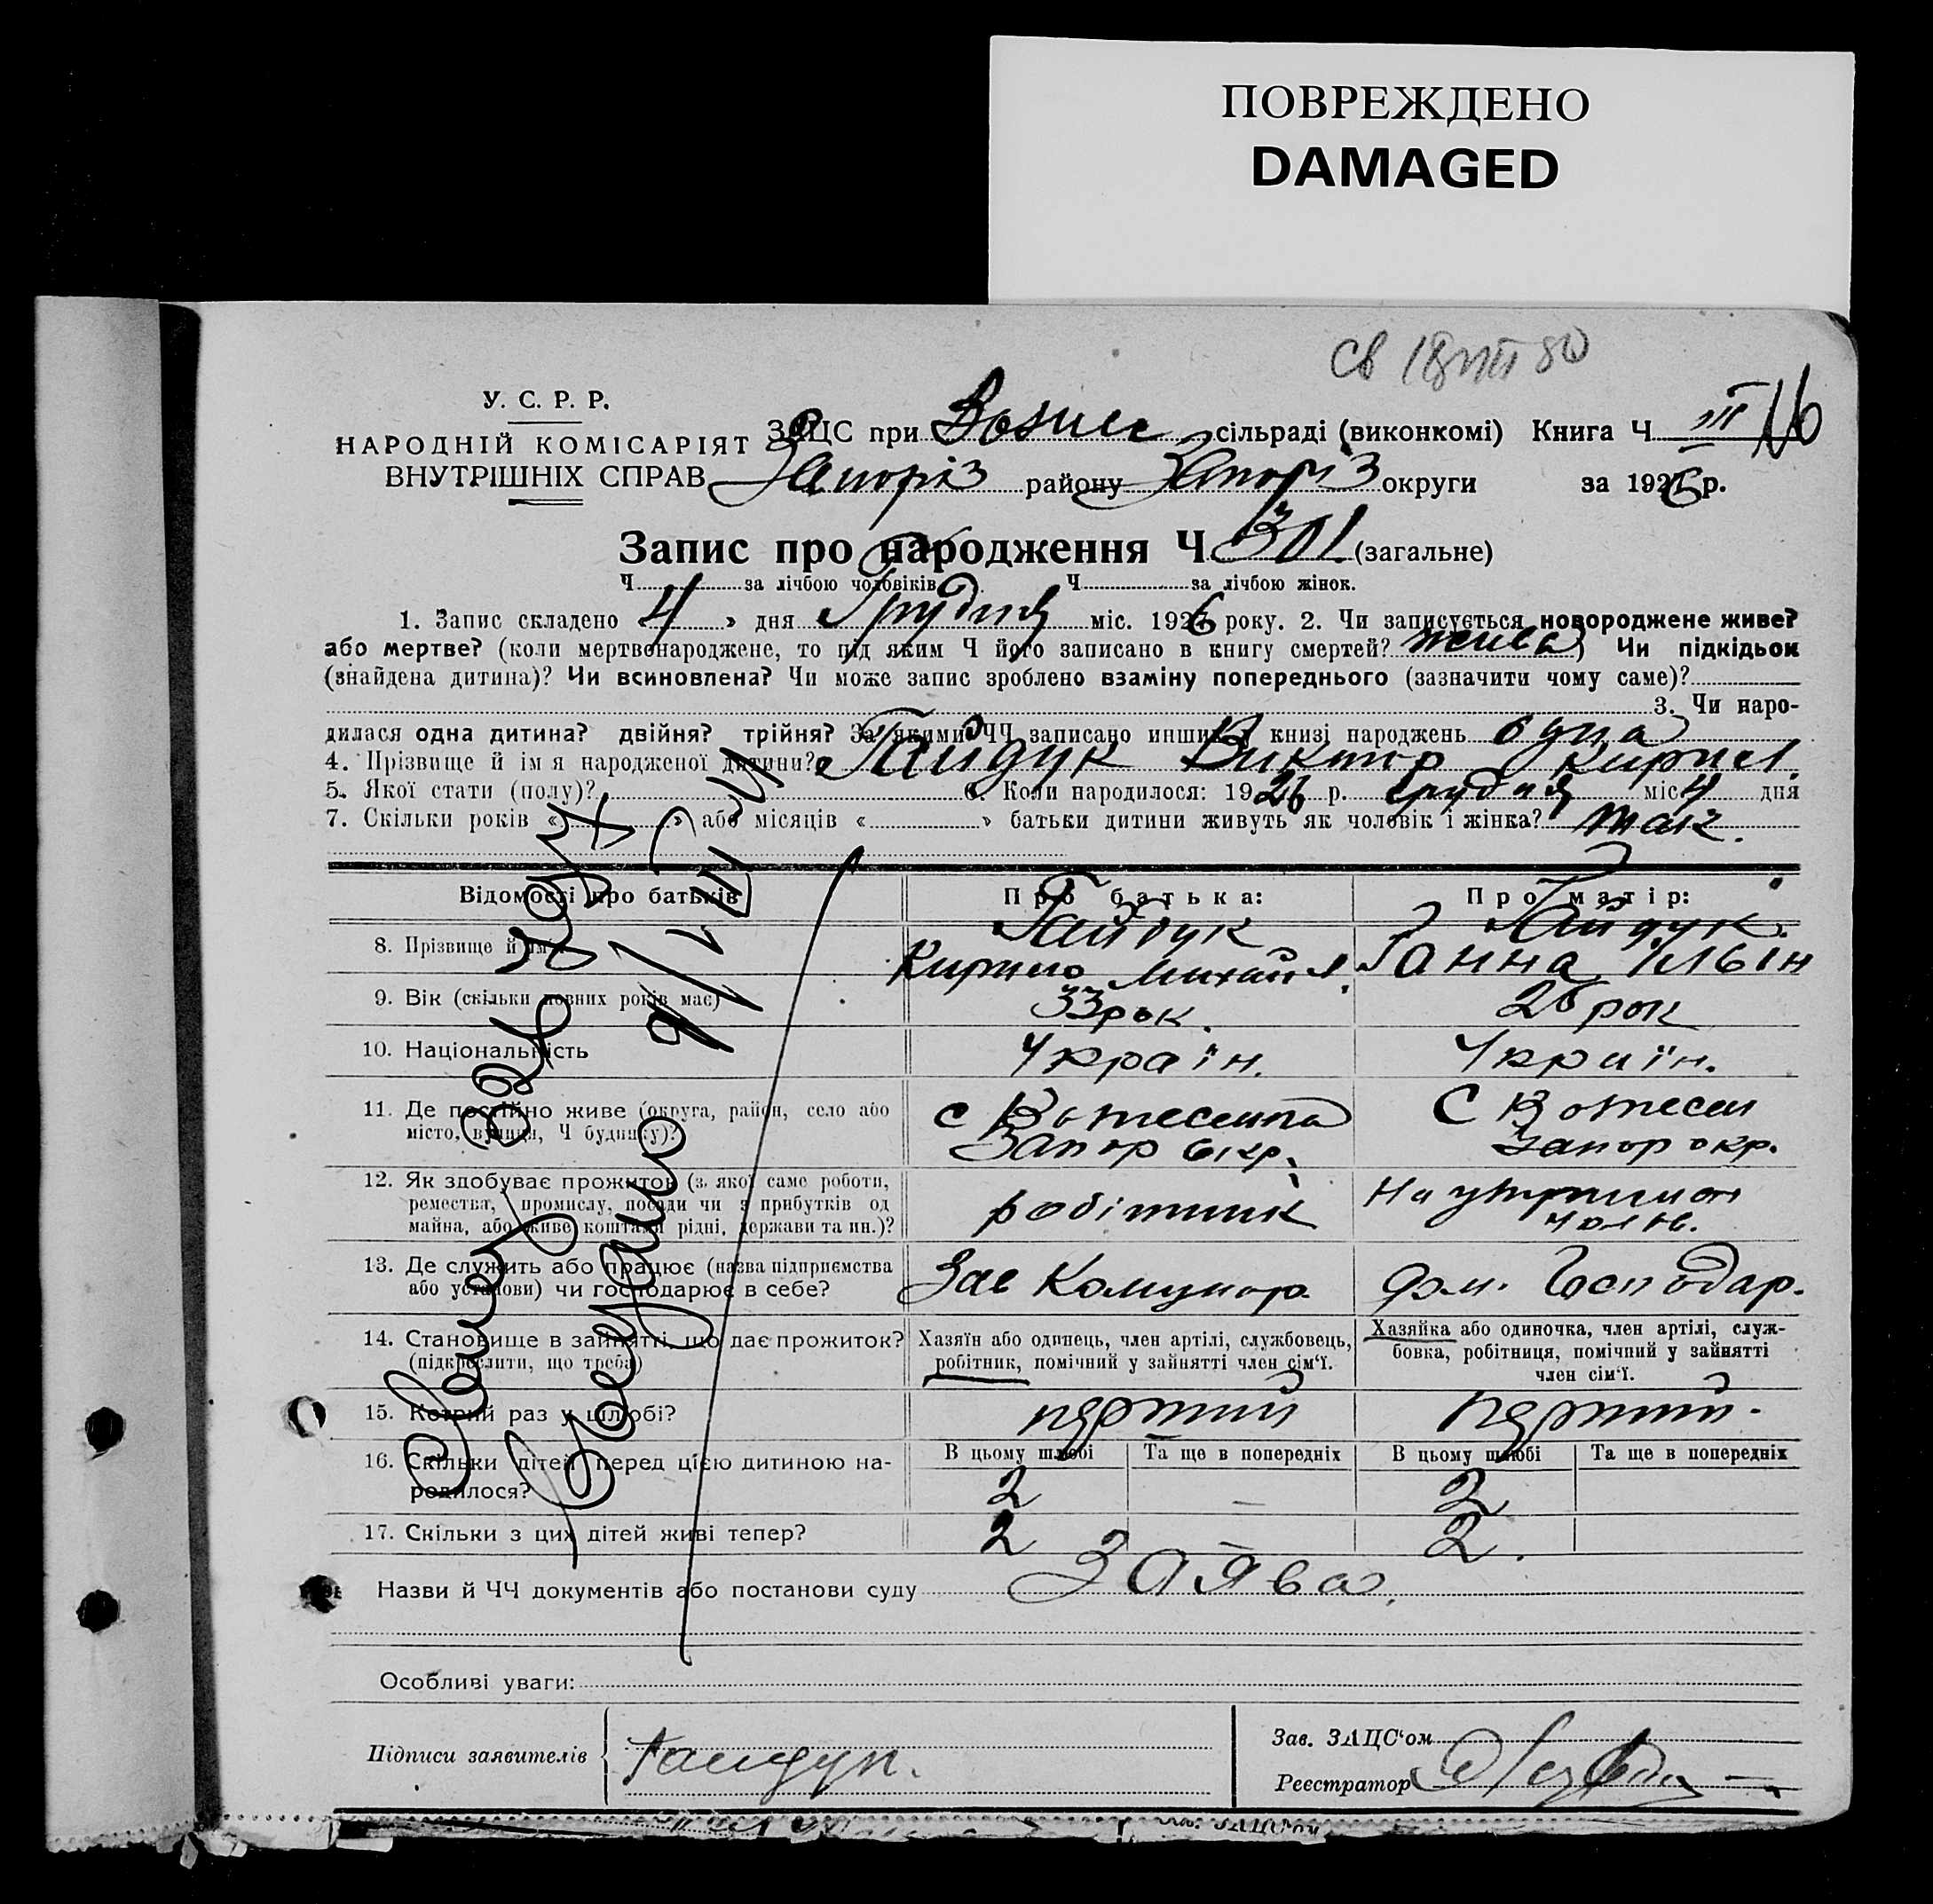 ПОВРЕЖДЕНО
DAMAGED
У. С. Р. Р.
НАРОДНІЙ КОМІСАРІЯТ
ВНУТРІШНІХ СПРАВ
ЗАЦС при Вознес сільраді (виконкомі) Книга Ч III
Запоріз району Запоріз округи за 1926 р.
Запис про народження Ч 301 (загальне)
Ч за лічбою чоловіків Ч за лічбою жінок.
1. Запис складено « 4 » дня Грудня міс. 1926 року. 2. Чи записується новороджене живе?
або мертве? (коли мертвонароджене, то під яким Ч його записано в книгу смертей? жива) Чи підкідьок
(знайдена дитина)? Чи всиновлена? Чи може запис зроблено взаміну попереднього (зазначити чому саме)?
3. Чи наро-
дилася одна дитина? двійня? трійня? За якими ЧЧ записано инших у книзі народжень одна
4. Прізвище й ім'я народженої дитини? Гайдук Виктор Кирил.
5. Якої стати (полу)? 6. Коли народилося: 1926 р. грудня міс 4 дня
7. Скільки років « » або місяців « » батьки дитини живуть як чоловік і жінка? так.
Відомості про батьків Про батька: Про матір:
8. Прізвище й ім'я Гайдук Кирило Михайл. Гайдук Ганна Ільїн
9. Вік (скільки повних років має) 33 рок. 26 рок
10. Національність Україн. Україн.
11. Де постійно живе (округа, район, село або
місто, вулиця, Ч будинку)?
с Вознесенка
Запор окр.
С Вознесен
Запор окр.
12. Як здобуває прожиток (з якої саме роботи,
ремества, промислу, посади чи з прибутків од
майна, або живе коштами рідні, держави та ин.)?
робітник
На утриман
чолов.
13. Де служить або працює (назва підприємства
або установи) чи господарює в себе?
Зав Комунар.
дом. Господар.
14. Становище в зайнятті, що дає прожиток?
(підкреслити, що треба)
Хазяїн або одинець, член артілі, службовець,
робітник, помічний у зайнятті член сім'ї.
Хазяйка або одиночка, член артілі, служ-
бовка, робітниця, помічний у зайнятті
член сім'ї.
15. Котрий раз у шлюбі? перший перший.
16. Скільки дітей перед цією дитиною на-
родилося?
В цьому шлюбі Та ще в попередніх В цьому шлюбі Та ще в попередніх
2 — 2
17. Скільки з цих дітей живі тепер? 2 — 2.
Назви й ЧЧ документів або постанови суду Заява.
Особливі уваги:
Підписи заявителів Гайдук.
Зав. ЗАЦС'ом
Реєстратор